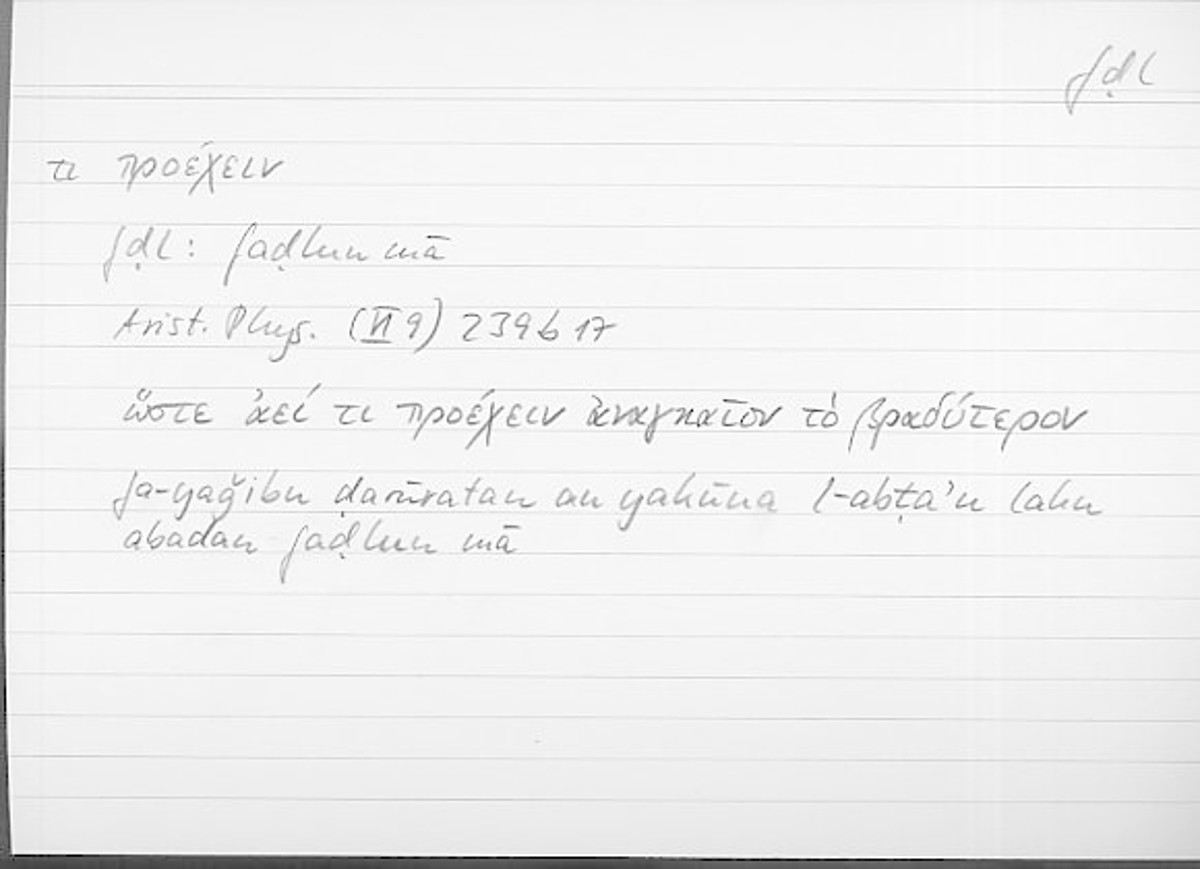 fḍl
τι προέχειν
fḍl: faḍlun mā
Arist. Phys. (VI 9) 239b17
ὥστε ἀεί τι προέχειν ἀναγκαῖον τὸ βραδύτερον
fa-yaǧibu ḍarūratan an yakūna l-abṭaʾu lahu
abadan faḍlun mā